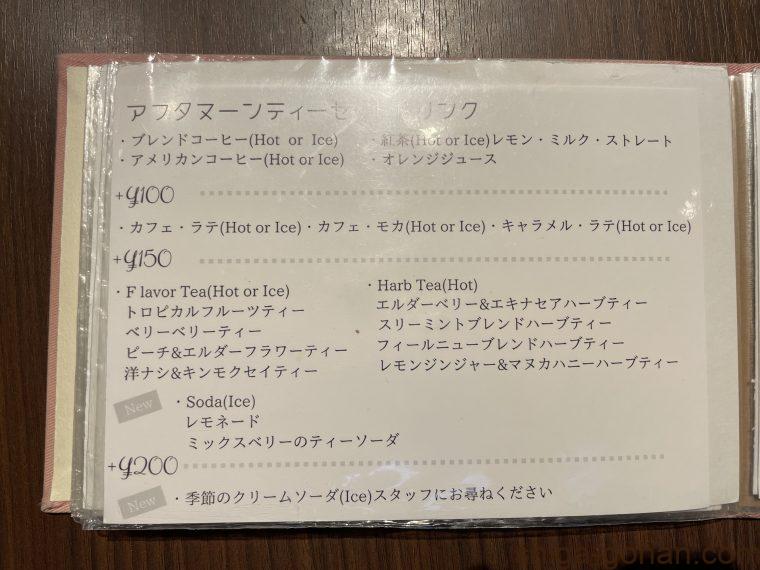 アフタヌーンティーセ リンク
・ブレンドコーヒー(Hot or Ice) ・紅茶(Hot or Ice)レモン・ミルク・ストレート
・アメリカンコーヒー(Hot or Ice) ・オレンジジュース
+¥100
・カフェ・ラテ(Hot or Ice)・カフェ・モカ(Hot or Ice)・キャラメル・ラテ(Hot or Ice)
+¥150
・F lavor Tea(Hot or Ice)
トロピカルフルーツティー
ベリーベリーティー
ピーチ&エルダーフラワーティー
洋ナシ&キンモクセイティー
・Harb Tea(Hot)
エルダーベリー&エキナセアハーブティー
スリーミントブレンドハーブティー
フィールニューブレンドハーブティー
レモンジンジャー&マヌカハニーハーブティー
New ・Soda(Ice)
レモネード
ミックスベリーのティーソーダ
+¥200
New ・季節のクリームソーダ(Ice)スタッフにお尋ねください